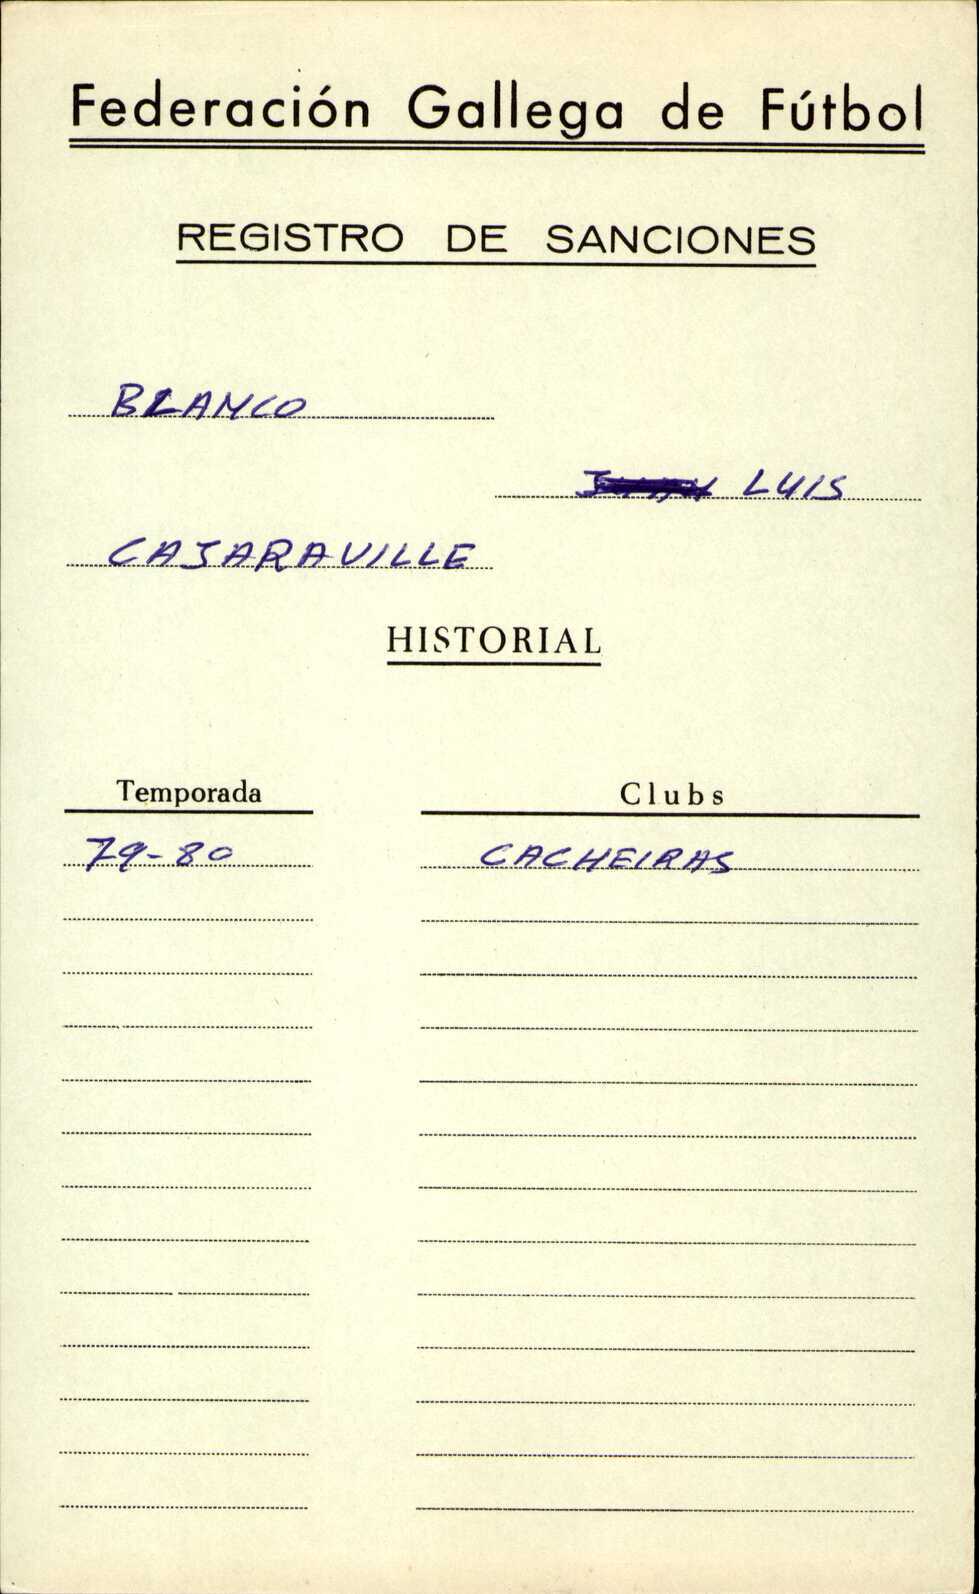 Federación Gallega de Fútbol
REGISTRO DE SANCIONES
BLANCO
LUIS
CAJARAVILLE
HISTORIAL
Temporada Clubs
79-80 CACHEIRAS